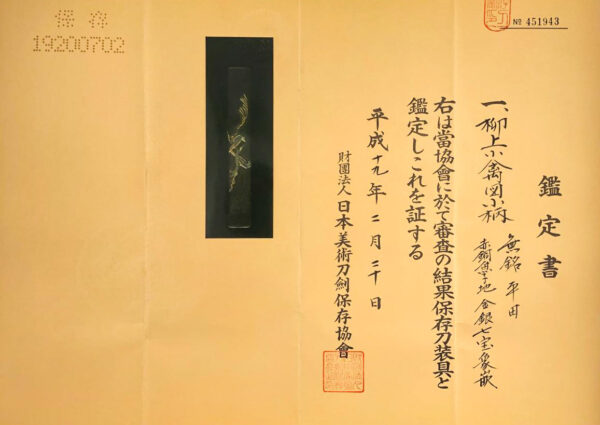 保存
19200702
№ 451943
鑑定書
一、柳上小禽図小柄
無銘 平田
赤銅魚子地 金銀七宝象嵌
右は當協會に於て審査の結果保存刀装具と
鑑定しこれを証する
平成十九年二月二十日
財團法人日本美術刀劍保存協會